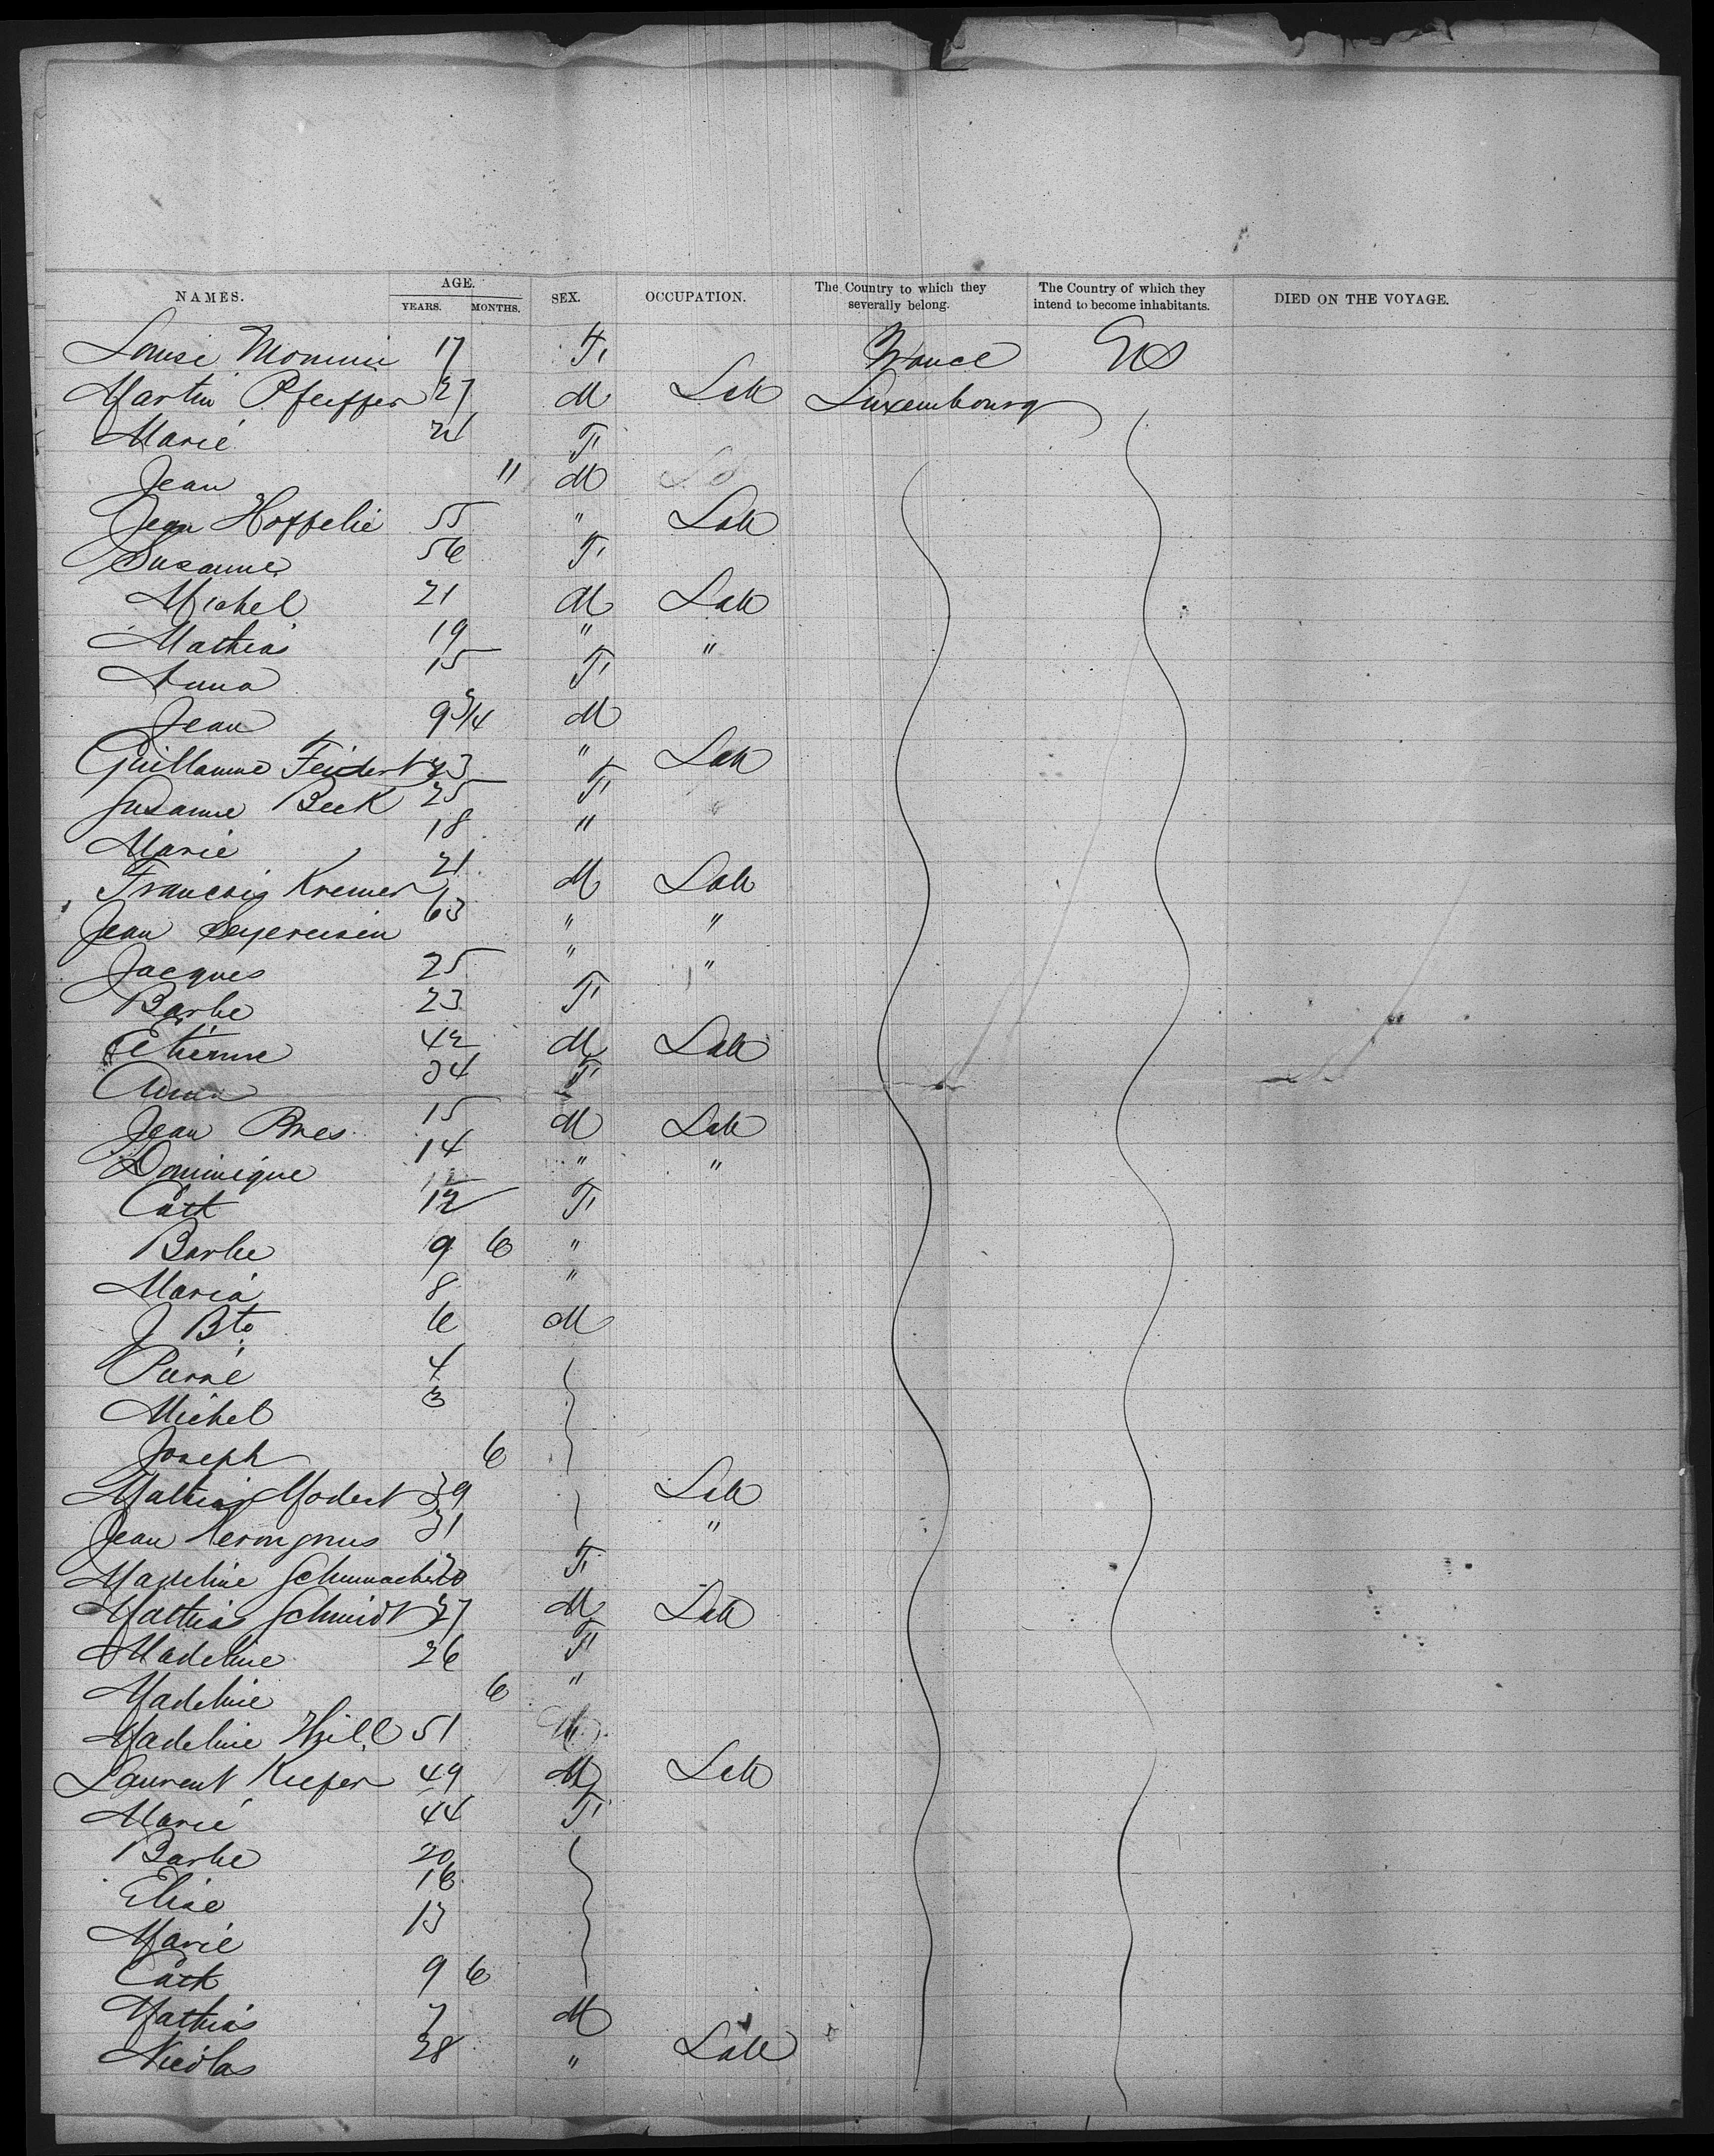 NAMES. AGE. YEARS. MONTHS. SEX. OCCUPATION. The Country to which they severally belong. The Country of which they intend to become inhabitants. DIED ON THE VOYAGE.
Louise 17 F France US
Martin Pfeiffer 27 M Lab Luxembourg
Marie 24 F
Jean 11 M
Jean Hoffelie 55 " Lab
Susanne 56 F
Michel 21 M Lab
Mathias 19 " "
Anna 15 F
Jean 9 3/4 M
Guillaume Feidert 23 " Lab
Susanne Beck 25 F
Marie 18 "
Francois Kremer 21 M Lab
Jean 63 " "
Jacques 25 " "
Barbe 23 F
Etienne 42 M Lab
Anna 34 F
Jean 15 M Lab
Dominique 14 " "
Cath 12 F
Barbe 9 6 "
Maria 8 "
J Bte 6 M
Pierre 4
Michel 3
Joseph 6
Mathias Modert 39 Lab
Jean 31 "
Madeline Schumacher 20 F
Mathias Schmidt 27 M Lab
Madeline 26 F
Madeline 6 "
Madeline Hill 51
Laurent Kiefer 49 M Lab
Marie 44 F
Barbe 20
Elise 16
Marie 13
Cath 9 6
Mathias 7 M
Nicolas 28 " Lab